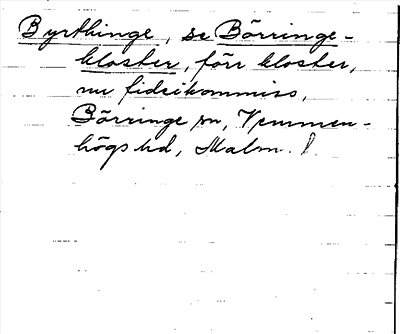 Byrthinge, se Börringe-
kloster, förr kloster,
nu fideikommiss,
Börringe sn, Vemmen-
högs hd, Malm. l.